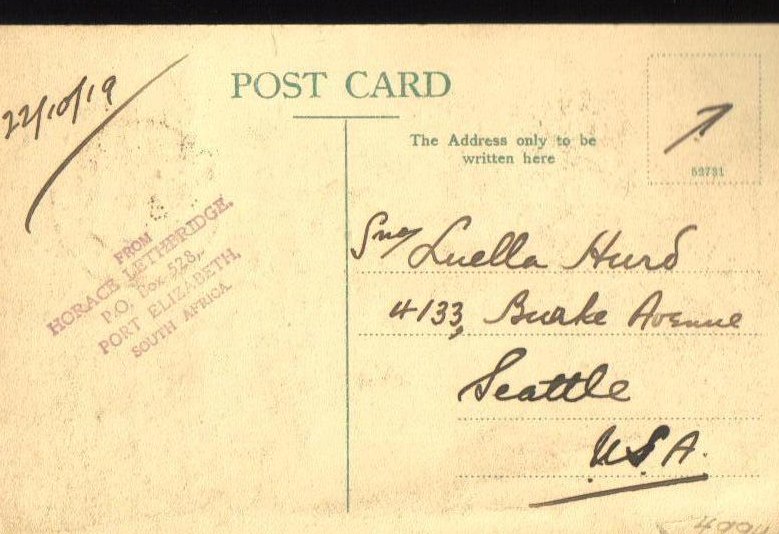 22/10/19
POST CARD
The Address only to be
written here
53731
FROM
HORACE LETHERIDGE,
P.O. Box 528,
PORT ELIZABETH,
SOUTH AFRICA.
Luella Hurd
4133, Burke Avenue
Seattle
U.S.A.